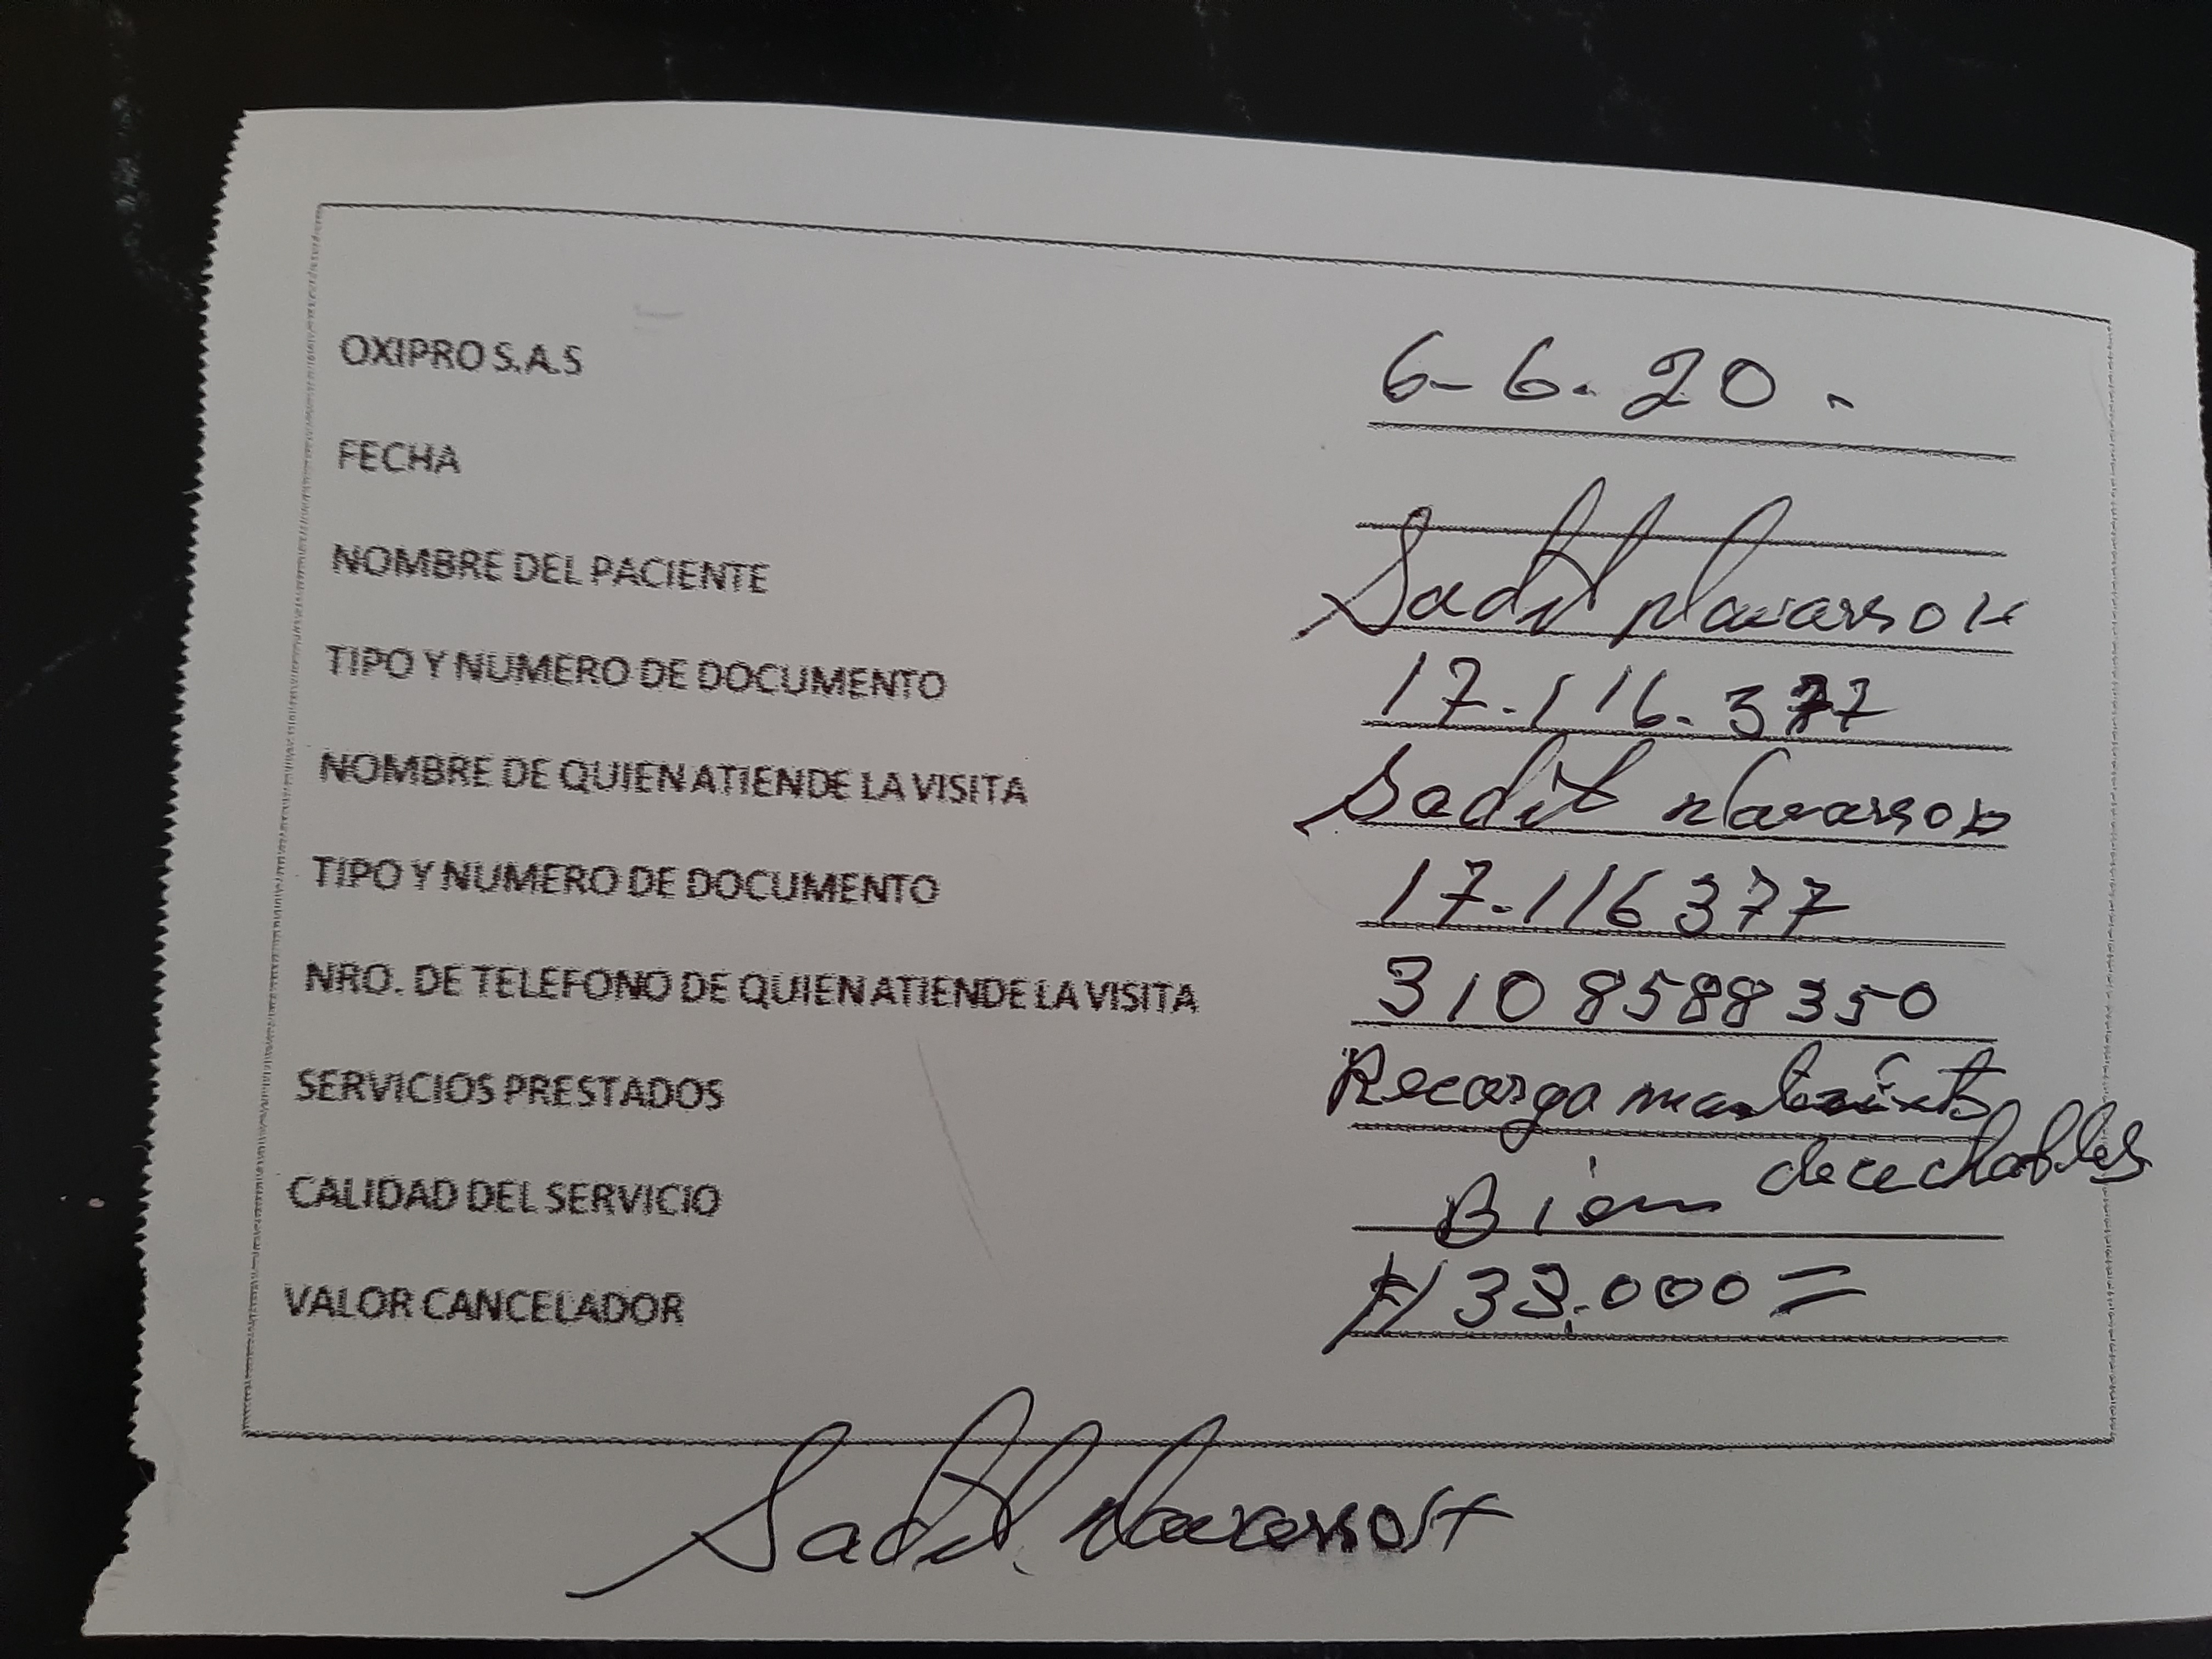 OXIPRO S.A.S 6-6.20.
FECHA
NOMBRE DEL PACIENTE Sadit Navarro
TIPO Y NUMERO DE DOCUMENTO 17.116.377
NOMBRE DE QUIEN ATIENDE LA VISITA Sadit Navarro
TIPO Y NUMERO DE DOCUMENTO 17.116377
NRO. DE TELEFONO DE QUIEN ATIENDE LA VISITA 3108588350
SERVICIOS PRESTADOS Recarga
decechables
CALIDAD DEL SERVICIO Bien
VALOR CANCELADOR 000=
Sadit Navarro